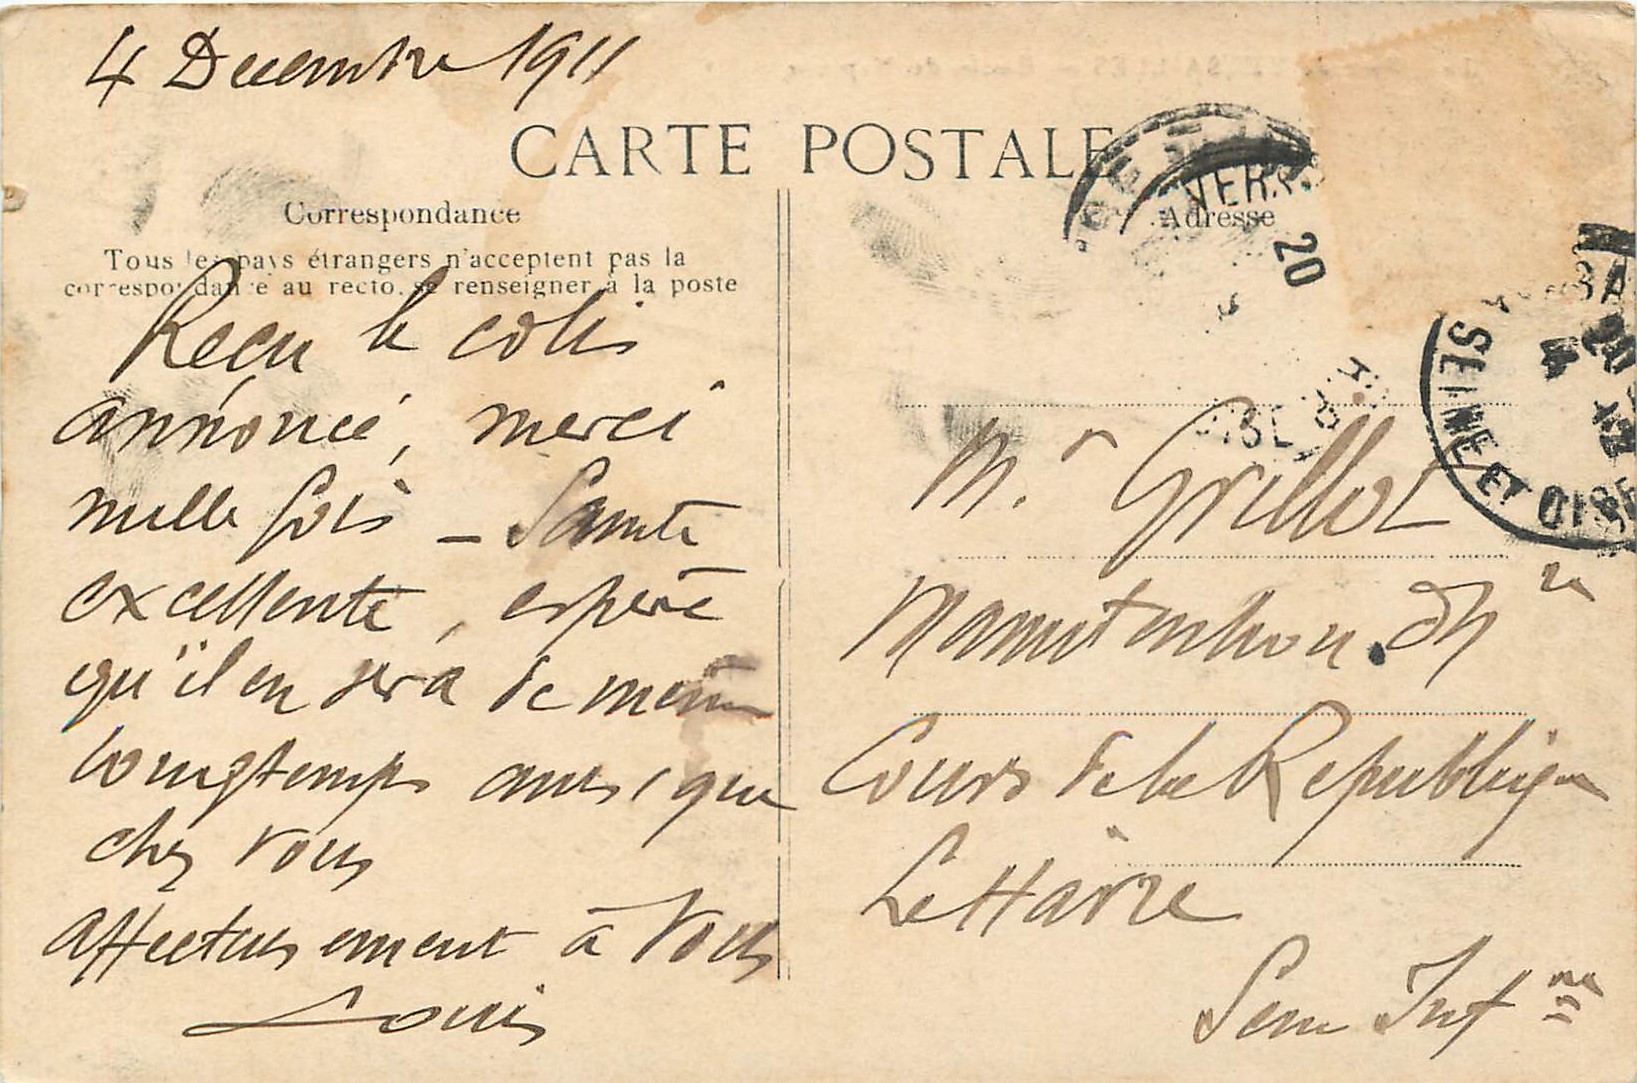 4 Decembre 1911
CARTE POSTALE
Correspondance
Tous les pays étrangers n'acceptent pas la
correspondance au recto, se renseigner à la poste
Recu le colis
annoncé, merci
mille fois - Santé
excellente, espère
qu'il en sera de même
longtemps ainsi que
chez vous
affectueusement à vous
Louis
Adresse
VERS
20
Mr Grillot
Manutention
Cours de la Republique
Le Havre
Seine Infre
SEINE ET OISE
4
20
XII